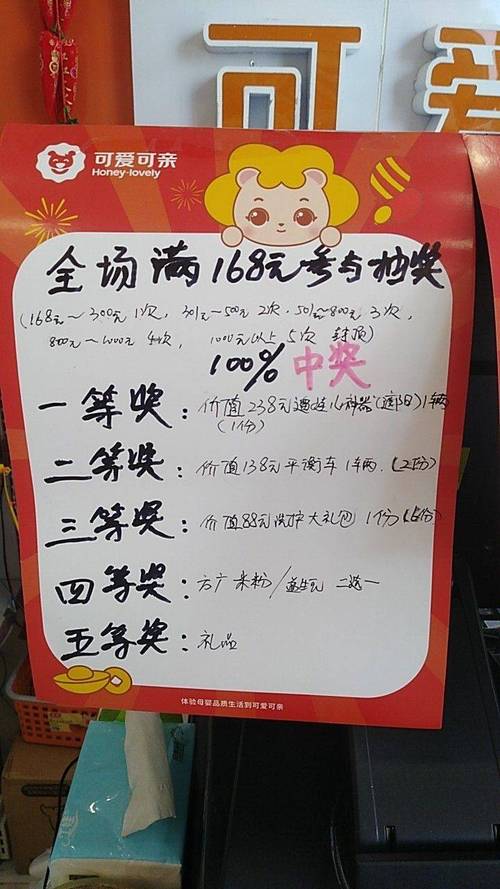 可爱
可爱可亲
Honey·lovely
全场满168元参与抽奖
(168元～300元1次，301元～500元2次，501元～800元3次，
800元～1000元4次，1000元以上5次 封顶)
100%中奖
一等奖：价值238元遛娃神器(遮阳)1辆
(1份)
二等奖：价值138元平衡车1辆.(2份)
三等奖：价值88元洗护大礼包 1份(6份)
四等奖：方广米粉/益生元 二选一
五等奖：礼品
体验母婴品质生活到可爱可亲